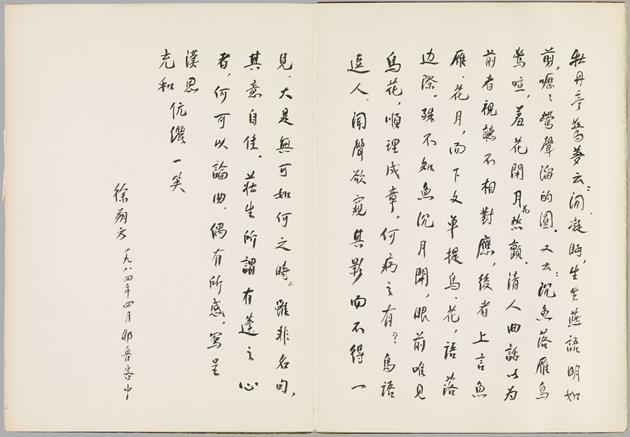 牡丹亭驚夢云:閒凝眄,生生燕語明如
剪,嚦嚦鶯聲溜的圓。又云:沉魚落雁鳥
驚喧,羞花閉月花愁顫。清人曲話以为
前者視聽不相對應,後者上言魚
雁、花月,而下文單提鳥、花,語落
边際。殊不知魚沉月閉,眼前唯見
鳥花,順理成章,何病之有?鳥語
逗人,聞聲欲窺其影而不得一
見,大是無可如何之時。雖非名句,
其意自佳。莊生所謂有蓬之心
者,何可以論曲。偶有所感,寫呈
漢思
充和伉儷一笑
徐朔方 一九八四年四月耶魯客中